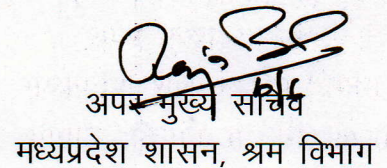 अपर मुख्य सचिव
मध्यप्रदेश शासन, श्रम विभाग